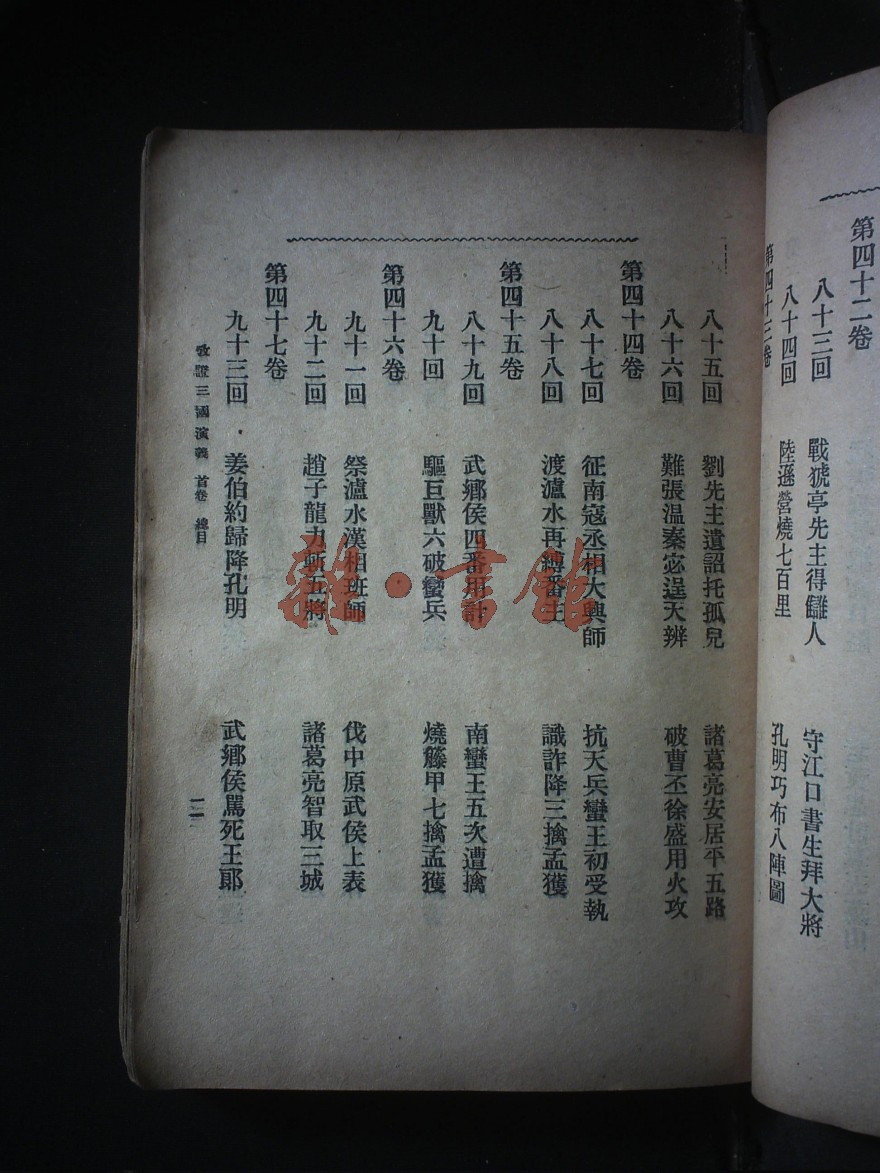 第四十二卷
八十三回 戰猇亭先主得讎人 守江口書生拜大將
八十四回 陸遜營燒七百里 孔明巧布八陣圖
第四十三卷
八十五回 劉先主遺詔托孤兒 諸葛亮安居平五路
八十六回 難張温秦宓逞天辨 破曹丕徐盛用火攻
第四十四卷
八十七回 征南寇丞相大興師 抗天兵蠻王初受執
八十八回 渡瀘水再縛番王 識詐降三擒孟獲
第四十五卷
八十九回 武鄉侯四番用計 南蠻王五次遭擒
九十回 驅巨獸六破蠻兵 燒籐甲七擒孟獲
第四十六卷
九十一回 祭瀘水漢相班師 伐中原武侯上表
九十二回 趙子龍力斬五將 諸葛亮智取三城
第四十七卷
九十三回 姜伯約歸降孔明 武鄉侯罵死王郞
攷證三國演義 首卷 總目
雜·書館